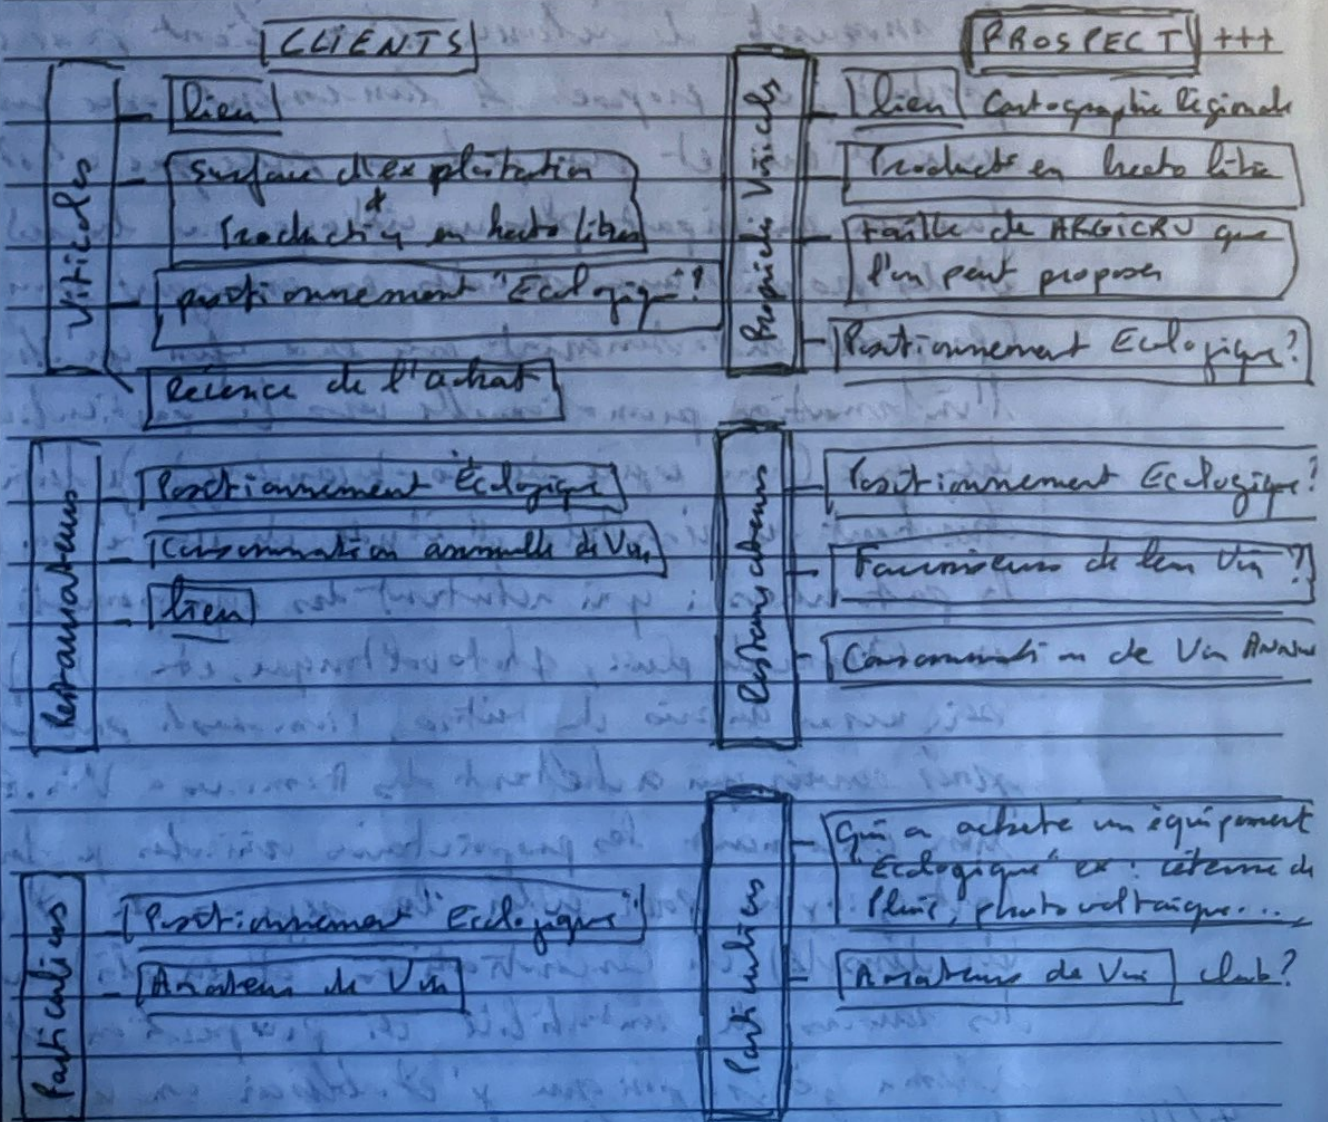 CLIENTS
Viticoles
lieu
Surface d'exploitation
+
Production en hectolitres
positionnement "Ecologique"?
Récence de l'achat
Restaurateurs
Positionnement Écologique
Consommation annuelle de Vin
lieu
Particuliers
Positionnement "Ecologique"
Amateur de Vin
PROSPECT +++
Viticoles
lieu Cartographie Régionale
Product° en hecto litre
taille de ARGICRU que
l'on peut proposer
Positionnement Ecologique?
Restaurateurs
Positionnement Ecologique?
Fournisseurs de leur Vin ?
Consommation de Vin
Particuliers
Qui a acheté un équipement
"Ecologique" ex : citerne de
Pluie, photovoltaïque...,
Amateurs de Vin club?